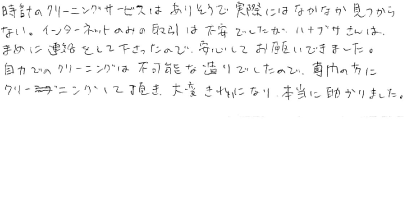 時計のクリーニングサービスは ありそうで 実際には なかなか 見つから
ない。インターネットのみの取引は 不安でしたが、ハナブサさんは、
まめに 連絡をして下さったので、安心して お願いできました。
自力でのクリーニングは 不可能な造りでしたので、専門の方に
クリーニングして頂き、大変きれいになり、本当に助かりました。